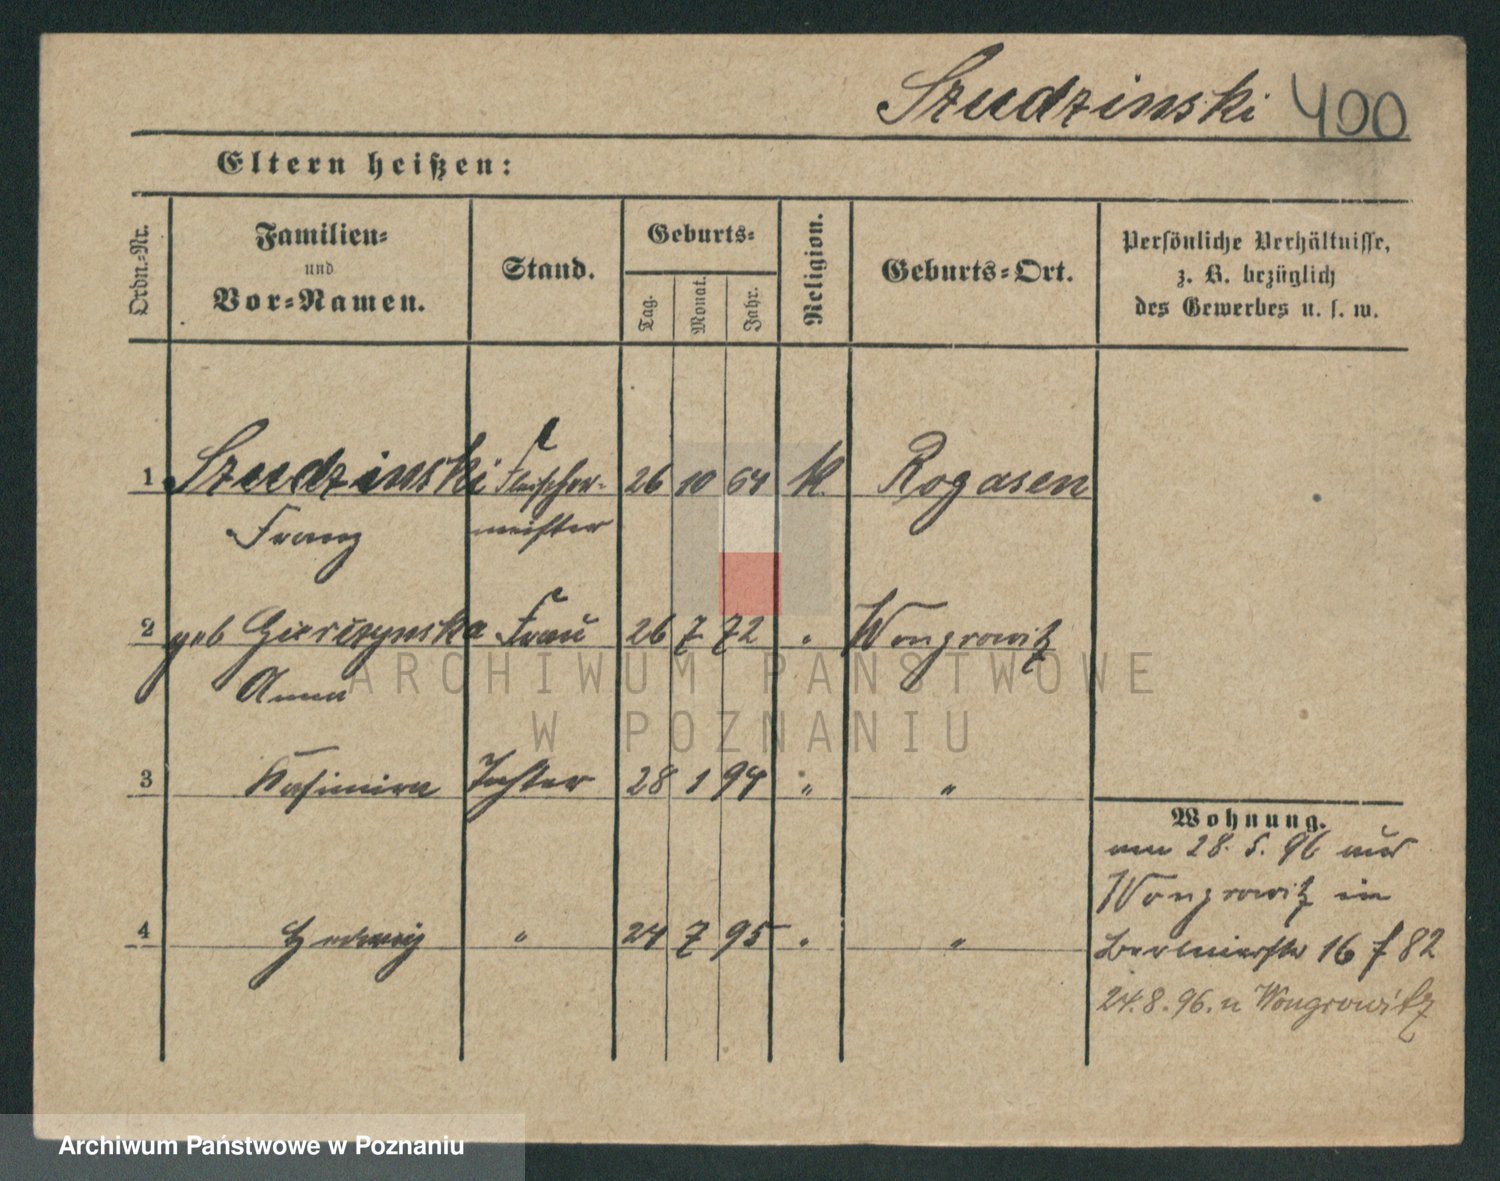 Szudzinski 400
Eltern heißen:
Ordn.-Nr.
Familien-
und
Vor-Namen.
Stand.
Geburts-
Tag.
Monat.
Jahr.
Religion.
Geburts-Ort.
Persönliche Verhältnisse,
z. B. bezüglich
des Gewerbes u. s. w.
1 Szudzinski Fleischer- 26 10 64 K. Rogasen
Franz meister
2 geb Frau 26 7 72 " Wongrowitz
Anna
ARCHIWUM PAŃSTWOWE
W POZNANIU
3 Kasimira Tochter 28 1 94 " "
4 Hedwig " 24 7 95 " "
Wohnung.
am 28. 5. 96 aus
Wongrowitz in
Berlinerstr 16 f 82
24. 8. 96. n Wongrowitz
Archiwum Państwowe w Poznaniu